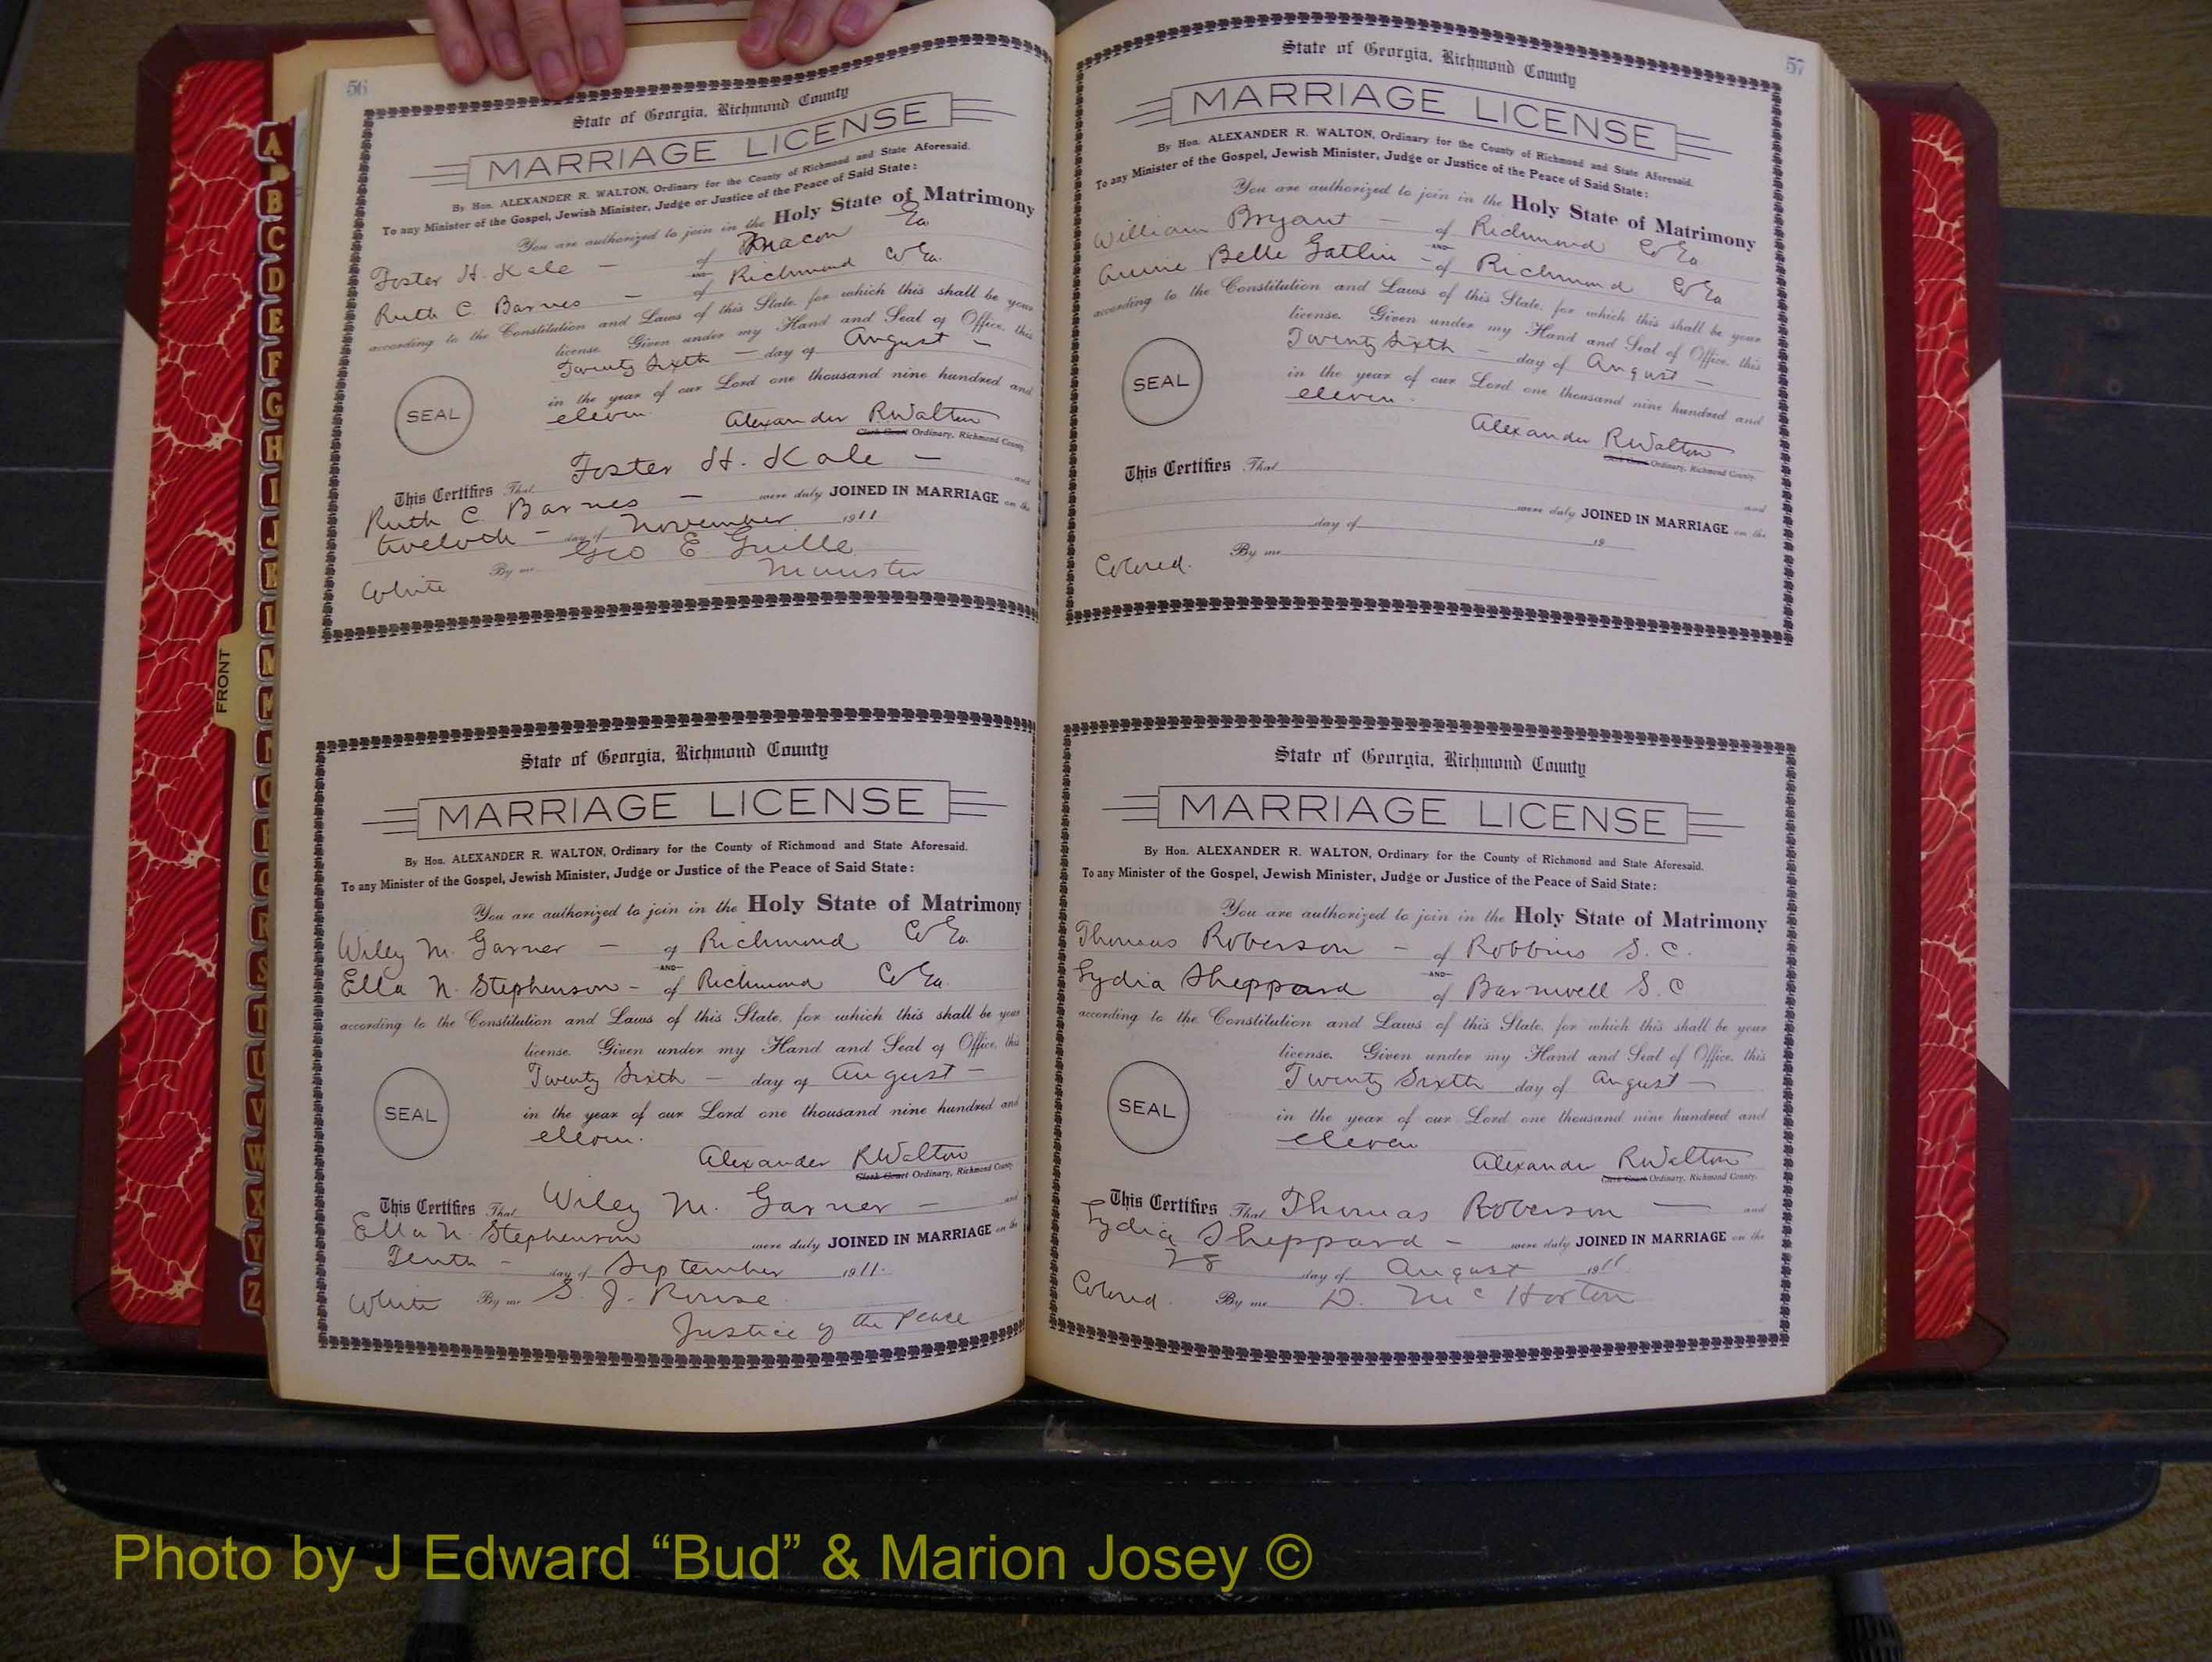 56
State of Georgia, Richmond County
MARRIAGE LICENSE
By Hon. ALEXANDER R. WALTON, Ordinary for the County of Richmond and State Aforesaid.
To any Minister of the Gospel, Jewish Minister, Judge or Justice of the Peace of Said State:
You are authorized to join in the Holy State of Matrimony
Foster H. Kale — of Macon Ga
AND
Ruth C. Barnes — of Richmond Co Ga.
according to the Constitution and Laws of this State, for which this shall be your
license. Given under my Hand and Seal of Office, this
Twenty Sixth — day of August —
in the year of our Lord one thousand nine hundred and
eleven.
SEAL
Alexander R Walton
Clerk Court Ordinary, Richmond County
This Certifies That Foster H. Kale — and
Ruth C. Barnes — were duly JOINED IN MARRIAGE on the
twelvth — day of November 1911
By me Geo E. Guille
Minister
White
State of Georgia, Richmond County
MARRIAGE LICENSE
By Hon. ALEXANDER R. WALTON, Ordinary for the County of Richmond and State Aforesaid.
To any Minister of the Gospel, Jewish Minister, Judge or Justice of the Peace of Said State:
You are authorized to join in the Holy State of Matrimony
Wiley M. Garner — of Richmond Co Ga.
AND
Ella N. Stephenson — of Richmond Co Ga.
according to the Constitution and Laws of this State, for which this shall be your
license. Given under my Hand and Seal of Office, this
Twenty Sixth — day of August —
in the year of our Lord one thousand nine hundred and
eleven.
SEAL
Alexander R Walton
Clerk Court Ordinary, Richmond County
This Certifies That Wiley M. Garner — and
Ella N. Stephenson were duly JOINED IN MARRIAGE on the
Tenth — day of September 1911.
White By me S. J. Rouse
Justice of the Peace
57
State of Georgia, Richmond County
MARRIAGE LICENSE
By Hon. ALEXANDER R. WALTON, Ordinary for the County of Richmond and State Aforesaid.
To any Minister of the Gospel, Jewish Minister, Judge or Justice of the Peace of Said State:
You are authorized to join in the Holy State of Matrimony
William Bryant — of Richmond Co Ga
AND
Annie Belle Gatlin — of Richmond Co Ga
according to the Constitution and Laws of this State, for which this shall be your
license. Given under my Hand and Seal of Office, this
Twenty Sixth — day of August —
in the year of our Lord one thousand nine hundred and
eleven.
SEAL
Alexander R Walton
Clerk Court Ordinary, Richmond County.
This Certifies That
and
were duly JOINED IN MARRIAGE on the
day of 19
Colored. By me
State of Georgia, Richmond County
MARRIAGE LICENSE
By Hon. ALEXANDER R. WALTON, Ordinary for the County of Richmond and State Aforesaid.
To any Minister of the Gospel, Jewish Minister, Judge or Justice of the Peace of Said State:
You are authorized to join in the Holy State of Matrimony
Thomas Roberson — of Robbins S. C.
AND
Lydia Sheppard of Barnwell S. C
according to the Constitution and Laws of this State, for which this shall be your
license. Given under my Hand and Seal of Office, this
Twenty Sixth day of August —
in the year of our Lord one thousand nine hundred and
eleven
SEAL
Alexander R Walton
Clerk Court Ordinary, Richmond County.
This Certifies That Thomas Roberson — and
Lydia Sheppard — were duly JOINED IN MARRIAGE on the
28 day of August 1911
Colored. By me D. McHorton
FRONT
A
B
C
D
E
F
G
H
I
J
K
L
M
N
O
P
Q
R
S
T
U
V
W
X
Y
Z
Photo by J Edward “Bud” & Marion Josey ©